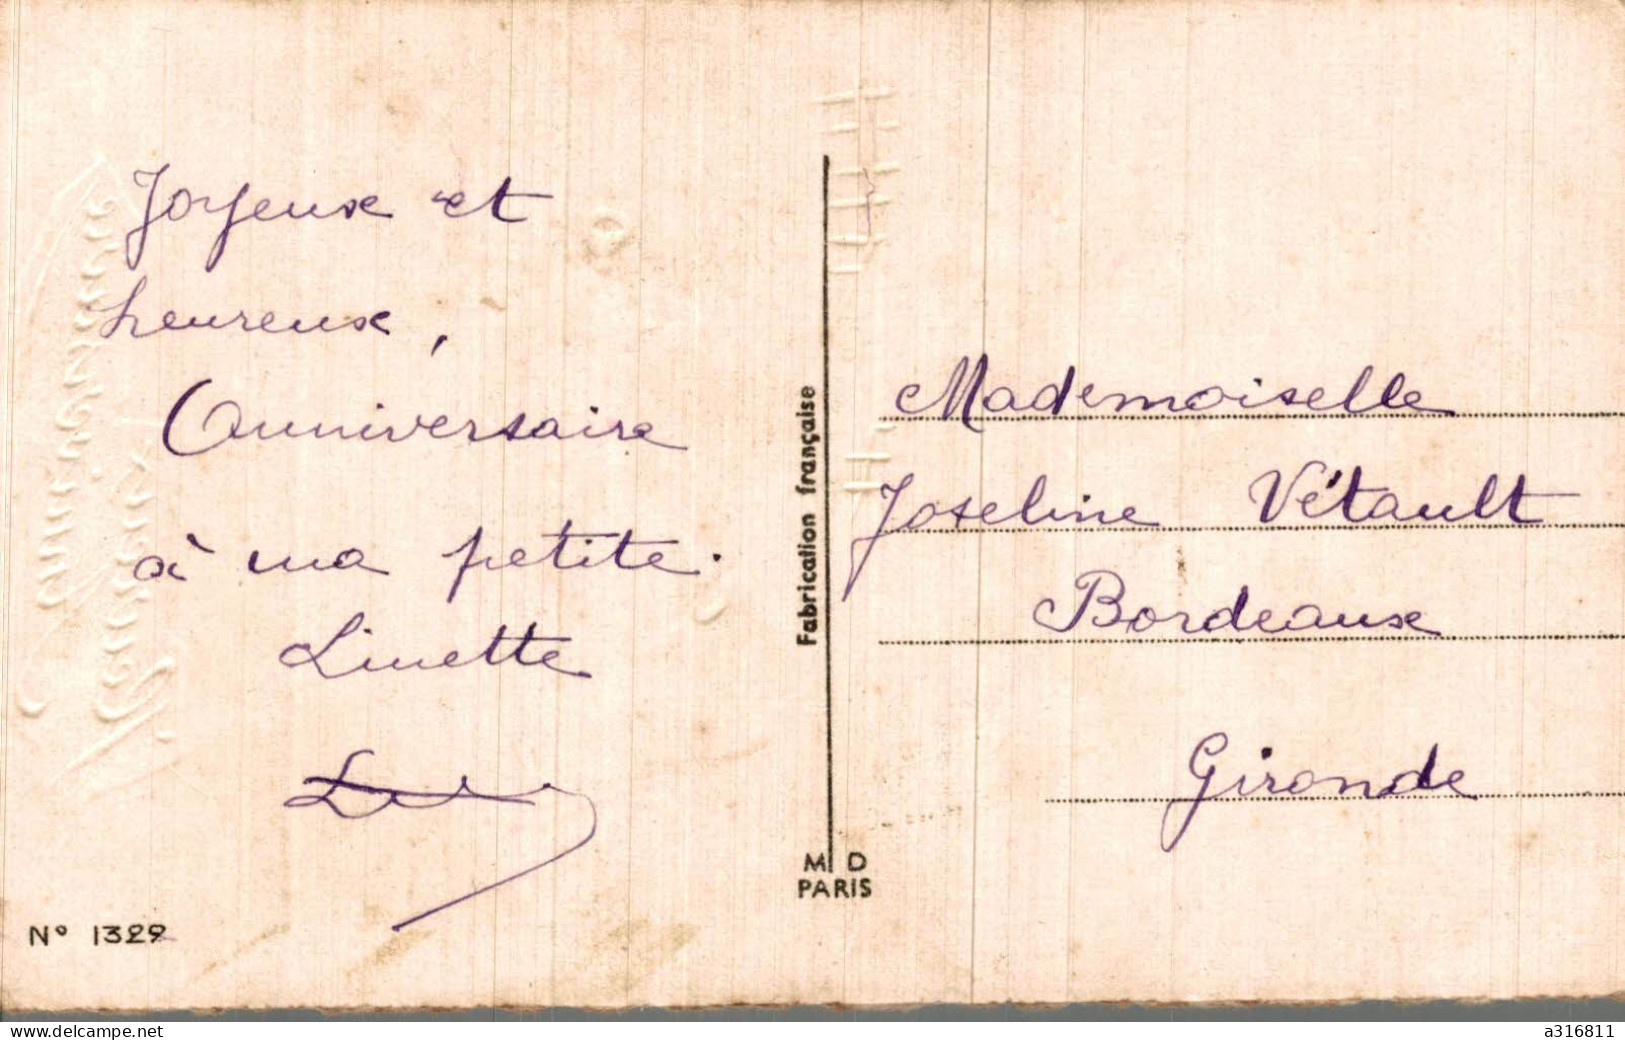 Joyeux et
heureux,
Anniversaire
à ma petite.
Linette
N° 1329
Fabrication française
M D
PARIS
Mademoiselle
Joseline Vétault
Bordeaux
Gironde
a316811